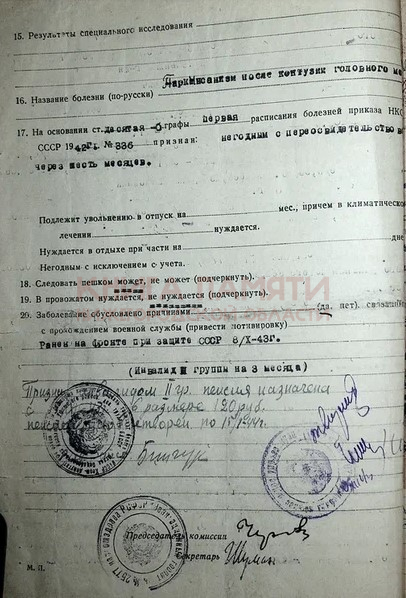 15. Результаты специального исследования
Паркинсонизм после контузии головного мо
16. Название болезни (по-русски)
17. На основании ст. десятая -б графы первая расписания болезней приказа НКО
СССР 1942г. № 336 признан: негодным с переосвидетельствова
через шесть месяцев.
Подлежит увольнению в отпуск на мес., причем в климатическом
лечении нуждается.
Нуждается в отдыхе при части на дне
Негодным с исключением с учета.
18. Следовать пешком может, не может (подчеркнуть).
19. В провожатом нуждается, не нуждается (подчеркнуть).
ПАМЯТИ
ОБЛАСТИ
20. Заболевание обусловлено причинами (да, нет), связанны
с прохождением военной службы (привести мотивировку)
Ранен на фронте при защите СССР 8/X-43г.
(Инвалид группы на 3 месяца)
II гр. пенсия назначена
в размере 120 руб.
по
Председатель комиссии
Секретарь Шуман
М. П.